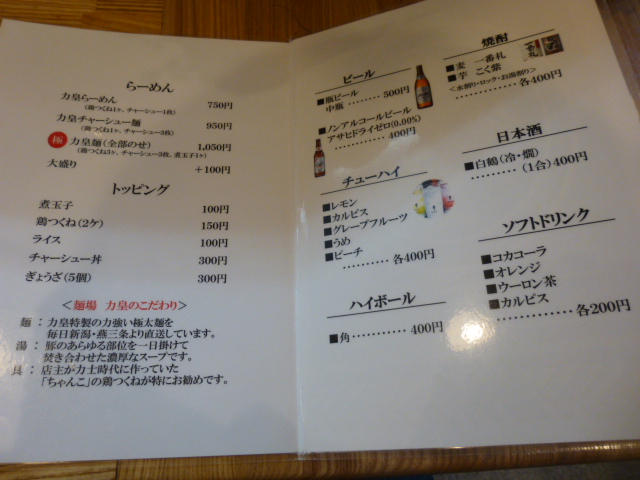 らーめん
力皇らーめん 750円
(鶏つくね1ヶ、チャーシュー1枚)
力皇チャーシュー麺 950円
(鶏つくね1ヶ、チャーシュー3枚)
極 力皇麺(全部のせ) 1,050円
(鶏つくね3ヶ、チャーシュー3枚、煮玉子1ヶ)
大盛り +100円
トッピング
煮玉子 100円
鶏つくね(2ケ) 150円
ライス 100円
チャーシュー丼 300円
ぎょうざ(5個) 300円
<麺場 力皇のこだわり>
麺:力皇特製の力強い極太麺を
毎日新潟・燕三条より直送しています。
湯:豚のあらゆる部位を一日掛けて
焚き合わせた濃厚なスープです。
具:店主が力士時代に作っていた
「ちゃんこ」の鶏つくねが特にお勧めです。
ビール
■瓶ビール
中瓶 ……… 500円
■ノンアルコールビール
アサヒドライゼロ(0.00%)
……… 400円
チューハイ
■レモン
■カルピス
■グレープフルーツ
■うめ
■ピーチ
……… 各400円
ハイボール
■角 ……… 400円
焼酎
■麦 一番札
■芋 こく紫
<水割り・ロック・お湯割り>
……… 各400円
日本酒
■白鶴(冷・燗)
……… (1合)400円
ソフトドリンク
■コカコーラ
■オレンジ
■ウーロン茶
■カルピス
……… 各200円